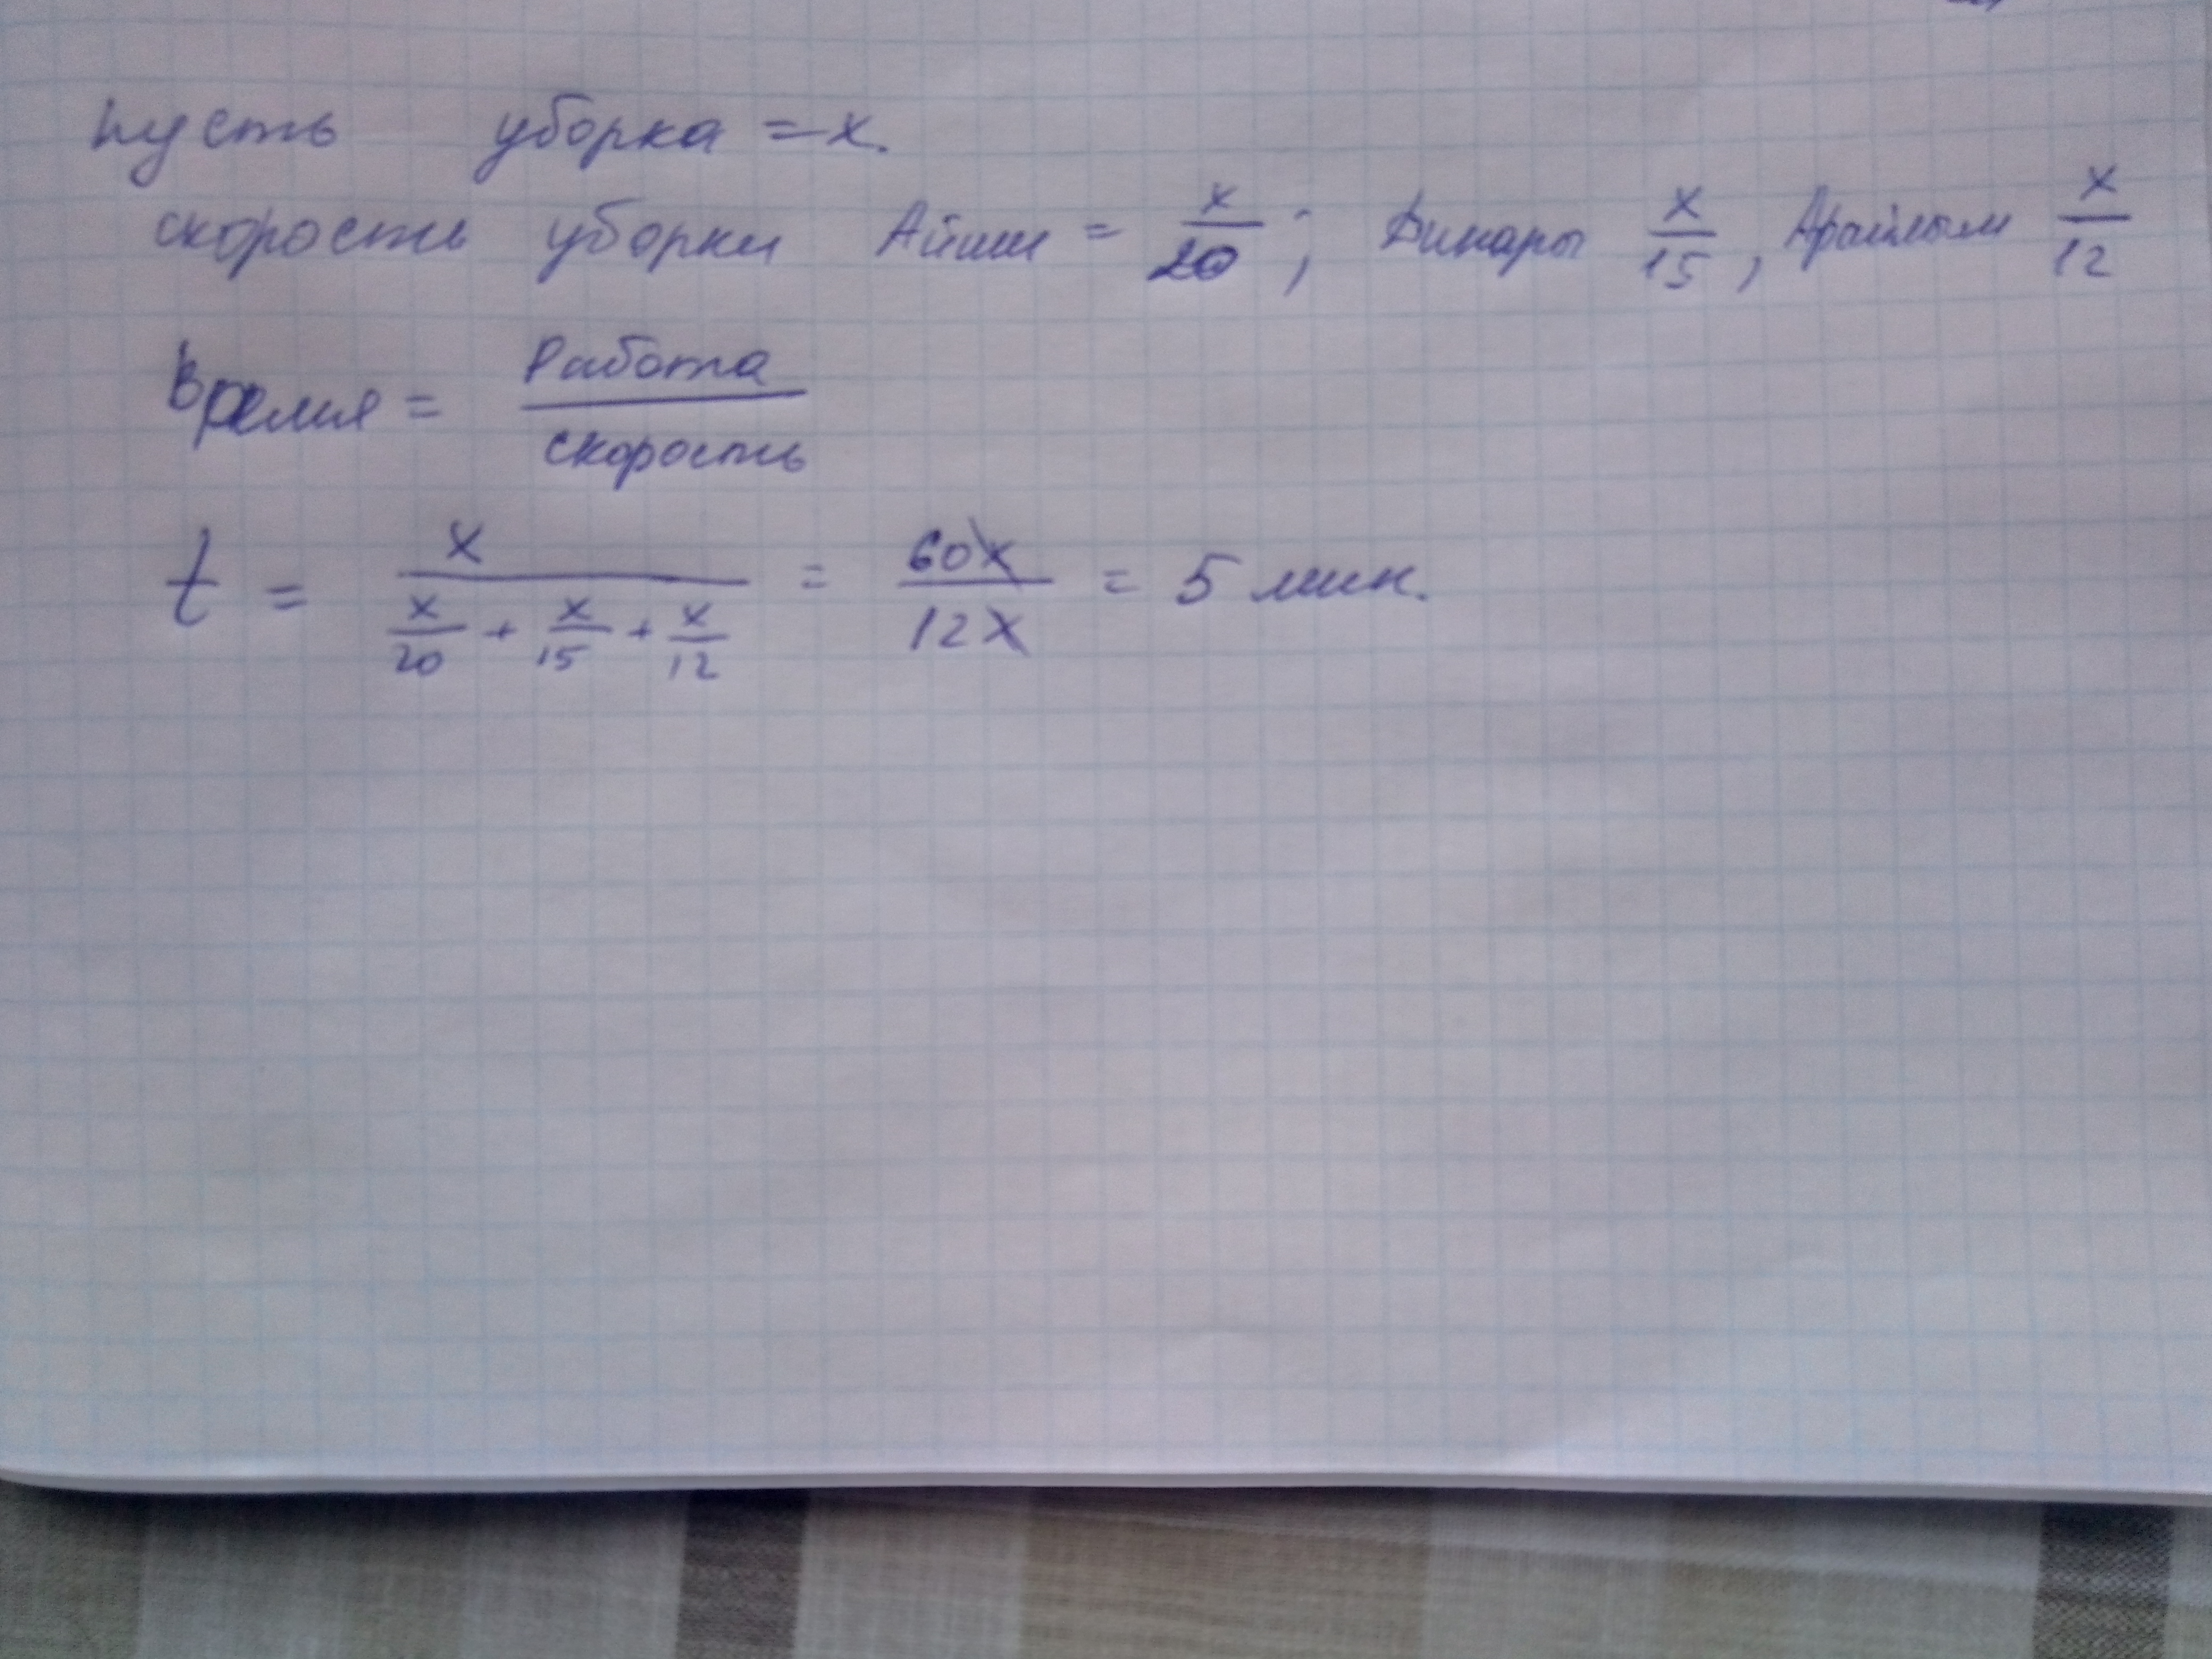 пусть уборка = x.
скорость уборки Айши = x/20; Динары x/15, Арайлым x/12
Время = Работа/скорость
t = x/(x/20 + x/15 + x/12) = 60x/12x = 5 мин.